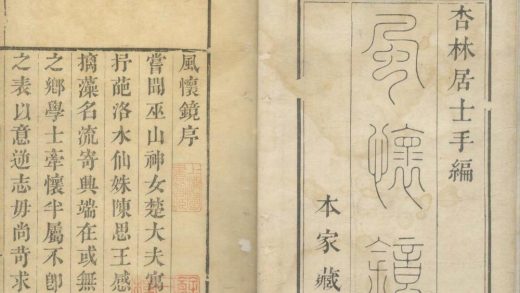 杏林居士手編
風懷鏡
本家藏
風懷鏡序
嘗聞巫山神女楚大夫寓
抒葩洛水仙姝陳思王感
摛藻名流寄興端在或無
之鄉學士牽懷半屬不卽
之表以意逆志毋尚苛求